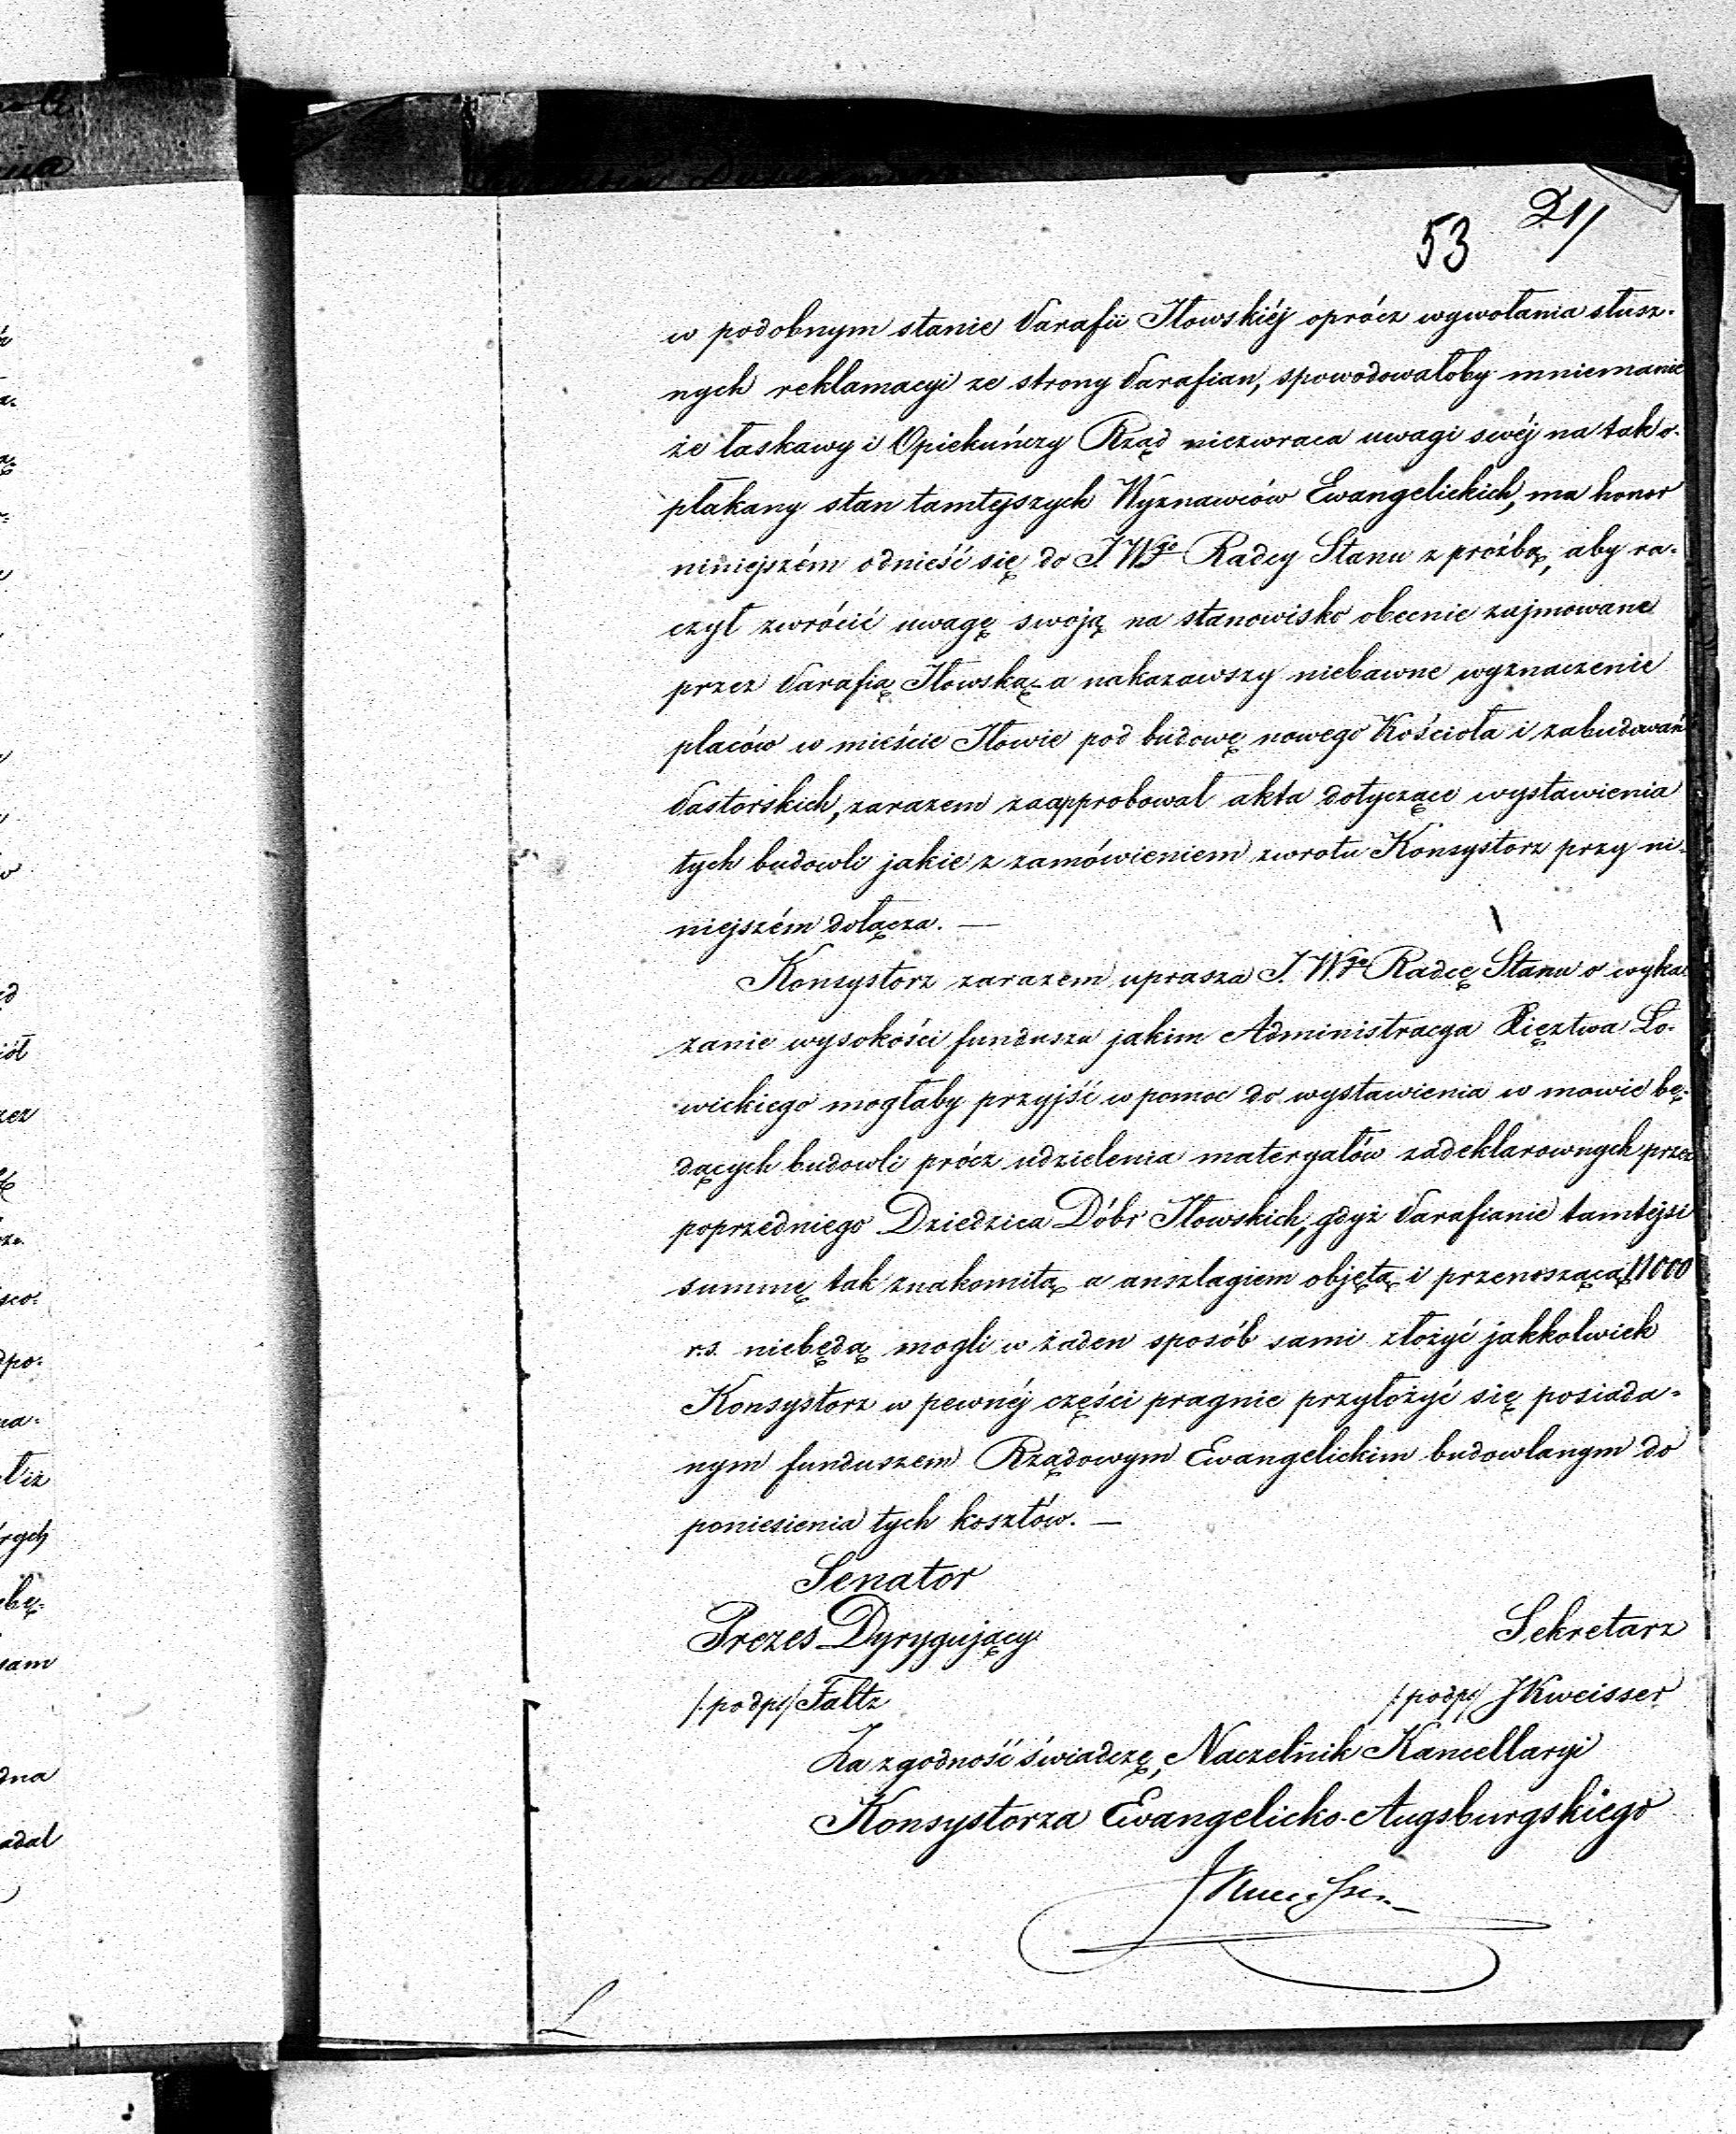 53 21/
w podobnym stanie Parafii Iłowskiéj oprócz wywołania słusz-
nych reklamacyi ze strony Parafian, spowodowałoby mniemanie
że łaskawy i Opiekuńczy Rząd niezwraca uwagi swéj na tak o-
płakany stan tamtejszych Wyznawców Ewangelickich, ma honor
niniejszém odnieść się do J. Wgo Radcy Stanu z proźbą, aby ra-
czył zwrócić uwagę swoją na stanowisko obecnie zajmowane
przez Parafią Iłowską a nakazawszy niebawne wyznaczenie
placów w mieście Iłowie pod budowę nowego Kościoła i zabudowań
Pastorskich, zarazem zaapprobował akta dotyczące wystawienia
tych budowli jakie z zamówieniem zwrotu Konsystorz przy ni-
niejszém dołącza. —
Konsystorz zarazem uprasza J. Wgo Radcę Stanu o wyka-
zanie wysokości funduszu jakim Administracya Xięztwa Ło-
wickiego mogłaby przyjść w pomoc do wystawienia w mowie bę-
dących budowli prócz udzielenia materyałów zadeklarownych przez
poprzedniego Dziedzica Dóbr Iłowskich, gdyż Parafianie tamtejsi
summę tak znakomitą a anszlagiem objętą i przenoszącą 11000
r.s. niebędą mogli w żaden sposób sami złożyć jakkolwiek
Konsystorz w pewnéj części pragnie przyłożyć się posiada-
nym funduszem Rządowym Ewangelickim budowlanym do
poniesienia tych kosztów. —
Senator
Prezes Dyrygujący Sekretarz
/:podps/ Faltz /:podps/ JKweisser
Za zgodność świadczę, Naczelnik Kancellaryi
Konsystorza Ewangelicko-Augsburgskiego
JKweisser